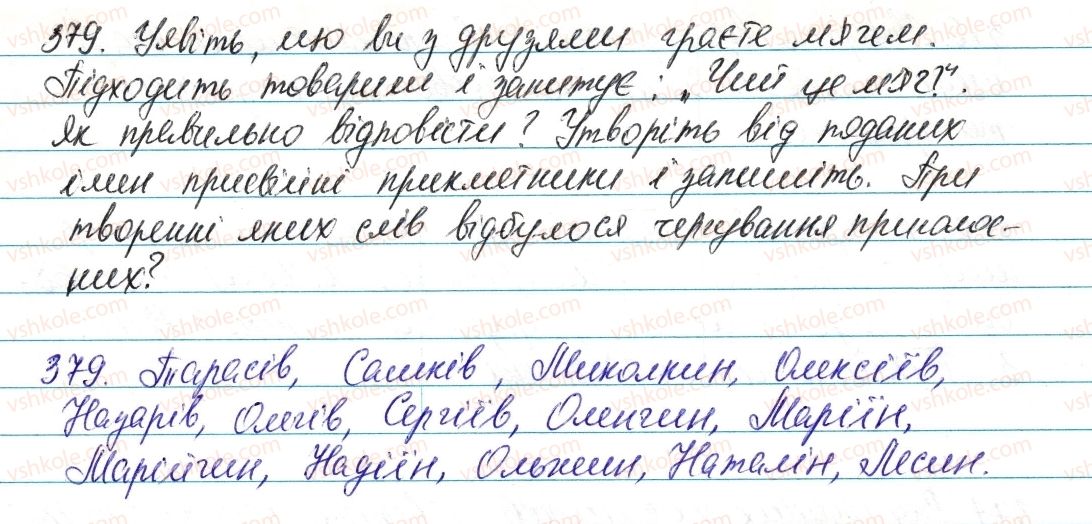 379. Уявіть, що ви з друзями граєте м'ячем.
Підходить товариш і запитує: „Чий це м'яч?".
Як правильно відповісти? Утворіть від поданих
імен присвійні прикметники і запишіть. При
творенні яких слів відбулося чергування приголос-
них?
379. Тарасів, Сашків, Миколин, Олексіїв,
Назарів, Олегів, Сергіїв, Оленчин, Маріїн,
Марійчин, Надіїн, Ольжин, Наталін, Лесин.